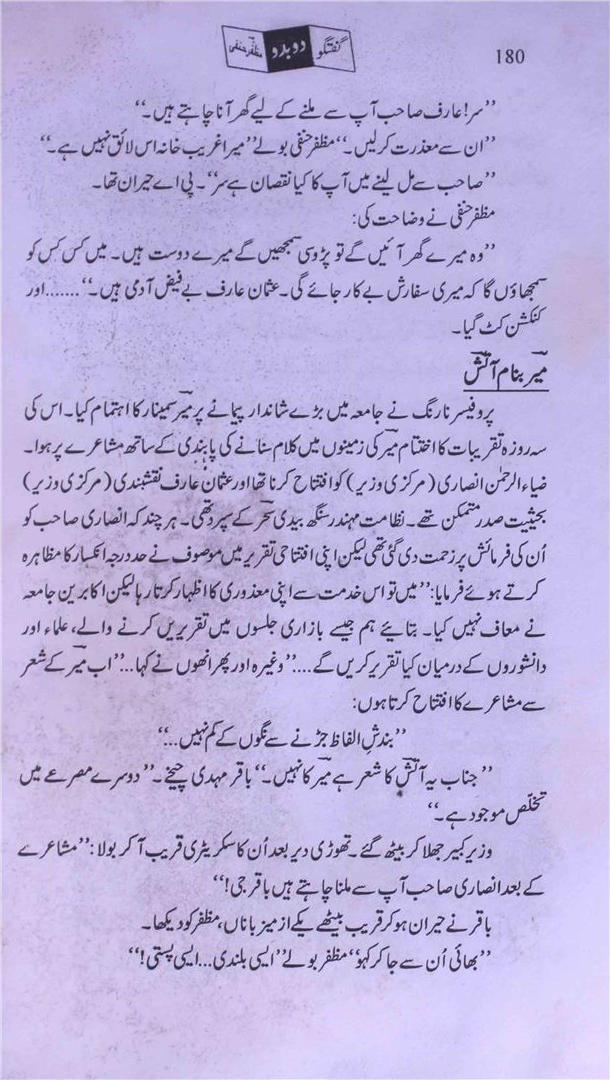 گفتگو دوبدو مظفر حنفی
180
’’سر! عارف صاحب آپ سے ملنے کے لیے گھر آنا چاہتے ہیں۔‘‘
’’ان سے معذرت کر لیں۔‘‘ مظفر حنفی بولے ’’میرا غریب خانہ اس لائق نہیں ہے۔‘‘
’’صاحب سے مل لینے میں آپ کا کیا نقصان ہے سر‘‘۔ پی اے حیران تھا۔
مظفر حنفی نے وضاحت کی:
’’وہ میرے گھر آئیں گے تو پڑوسی سمجھیں گے میرے دوست ہیں۔ میں کس کس کو
سمجھاؤں گا کہ میری سفارش بے کار جائے گی۔ عثمان عارف بے فیض آدمی ہیں۔‘‘.......اور
کنکشن کٹ گیا۔
میرؔ بنام آتشؔ
پروفیسر نارنگ نے جامعہ میں بڑے شاندار پیمانے پر میرؔ سمینار کا اہتمام کیا۔ اس کی
سہ روزہ تقریبات کا اختتام میرؔ کی زمینوں میں کلام سنانے کی پابندی کے ساتھ مشاعرے پر ہوا۔
ضیاء الرحمٰن انصاری (مرکزی وزیر) کو افتتاح کرنا تھا اور عثمان عارف نقشبندی (مرکزی وزیر)
بحیثیت صدر متمکن تھے۔ نظامت مہندر سنگھ بیدی سحرؔ کے سپرد تھی۔ ہر چند کہ انصاری صاحب کو
اُن کی فرمائش پر زحمت دی گئی تھی لیکن اپنی افتتاحی تقریر میں موصوف نے حد درجہ انکسار کا مظاہرہ
کرتے ہوئے فرمایا: ’’میں تو اس خدمت سے اپنی معذوری کا اظہار کرتا رہا لیکن اکابرین جامعہ
نے معاف نہیں کیا۔ بتائیے ہم جیسے بازاری جلسوں میں تقریریں کرنے والے، علماء اور
دانشوروں کے درمیان کیا تقریر کریں گے....‘‘ وغیرہ اور پھر انھوں نے کہا...’’اب میرؔ کے شعر
سے مشاعرے کا افتتاح کرتا ہوں:
’’بندشِ الفاظ جڑنے سے نگوں کے کم نہیں...‘‘
’’جناب یہ آتشؔ کا شعر ہے میرؔ کا نہیں۔‘‘ باقر مہدی چیخے۔ ’’دوسرے مصرعے میں
تخلّص موجود ہے۔‘‘
وزیر کبیر جھلا کر بیٹھ گئے۔ تھوڑی دیر بعد اُن کا سکریٹری قریب آ کر بولا: ’’مشاعرے
کے بعد انصاری صاحب آپ سے ملنا چاہتے ہیں باقر جی!‘‘
باقر نے حیران ہو کر قریب بیٹھے یکے از میزباناں، مظفر کو دیکھا۔
’’بھائی اُن سے جا کر کہو‘‘ مظفر بولے ’’ایسی بلندی...ایسی پستی!‘‘